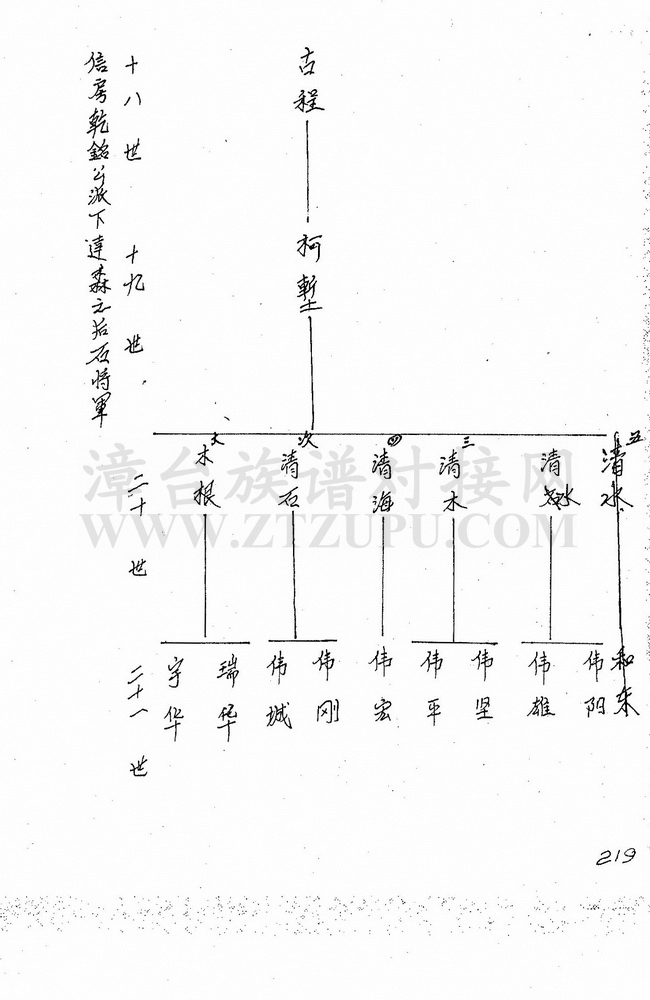 信房乾銘公派下達森之后石将軍
十八世
十九世
二十世
二十一世
古程
柯塹
大 次 四 三 五
木根
清石
清海
清木
清水
清水
宇华
瑞华
伟城
伟刚
伟宏
伟平
伟坚
伟雄
伟阳
和东
漳台族谱对接网
WWW.ZTZUPU.COM
219